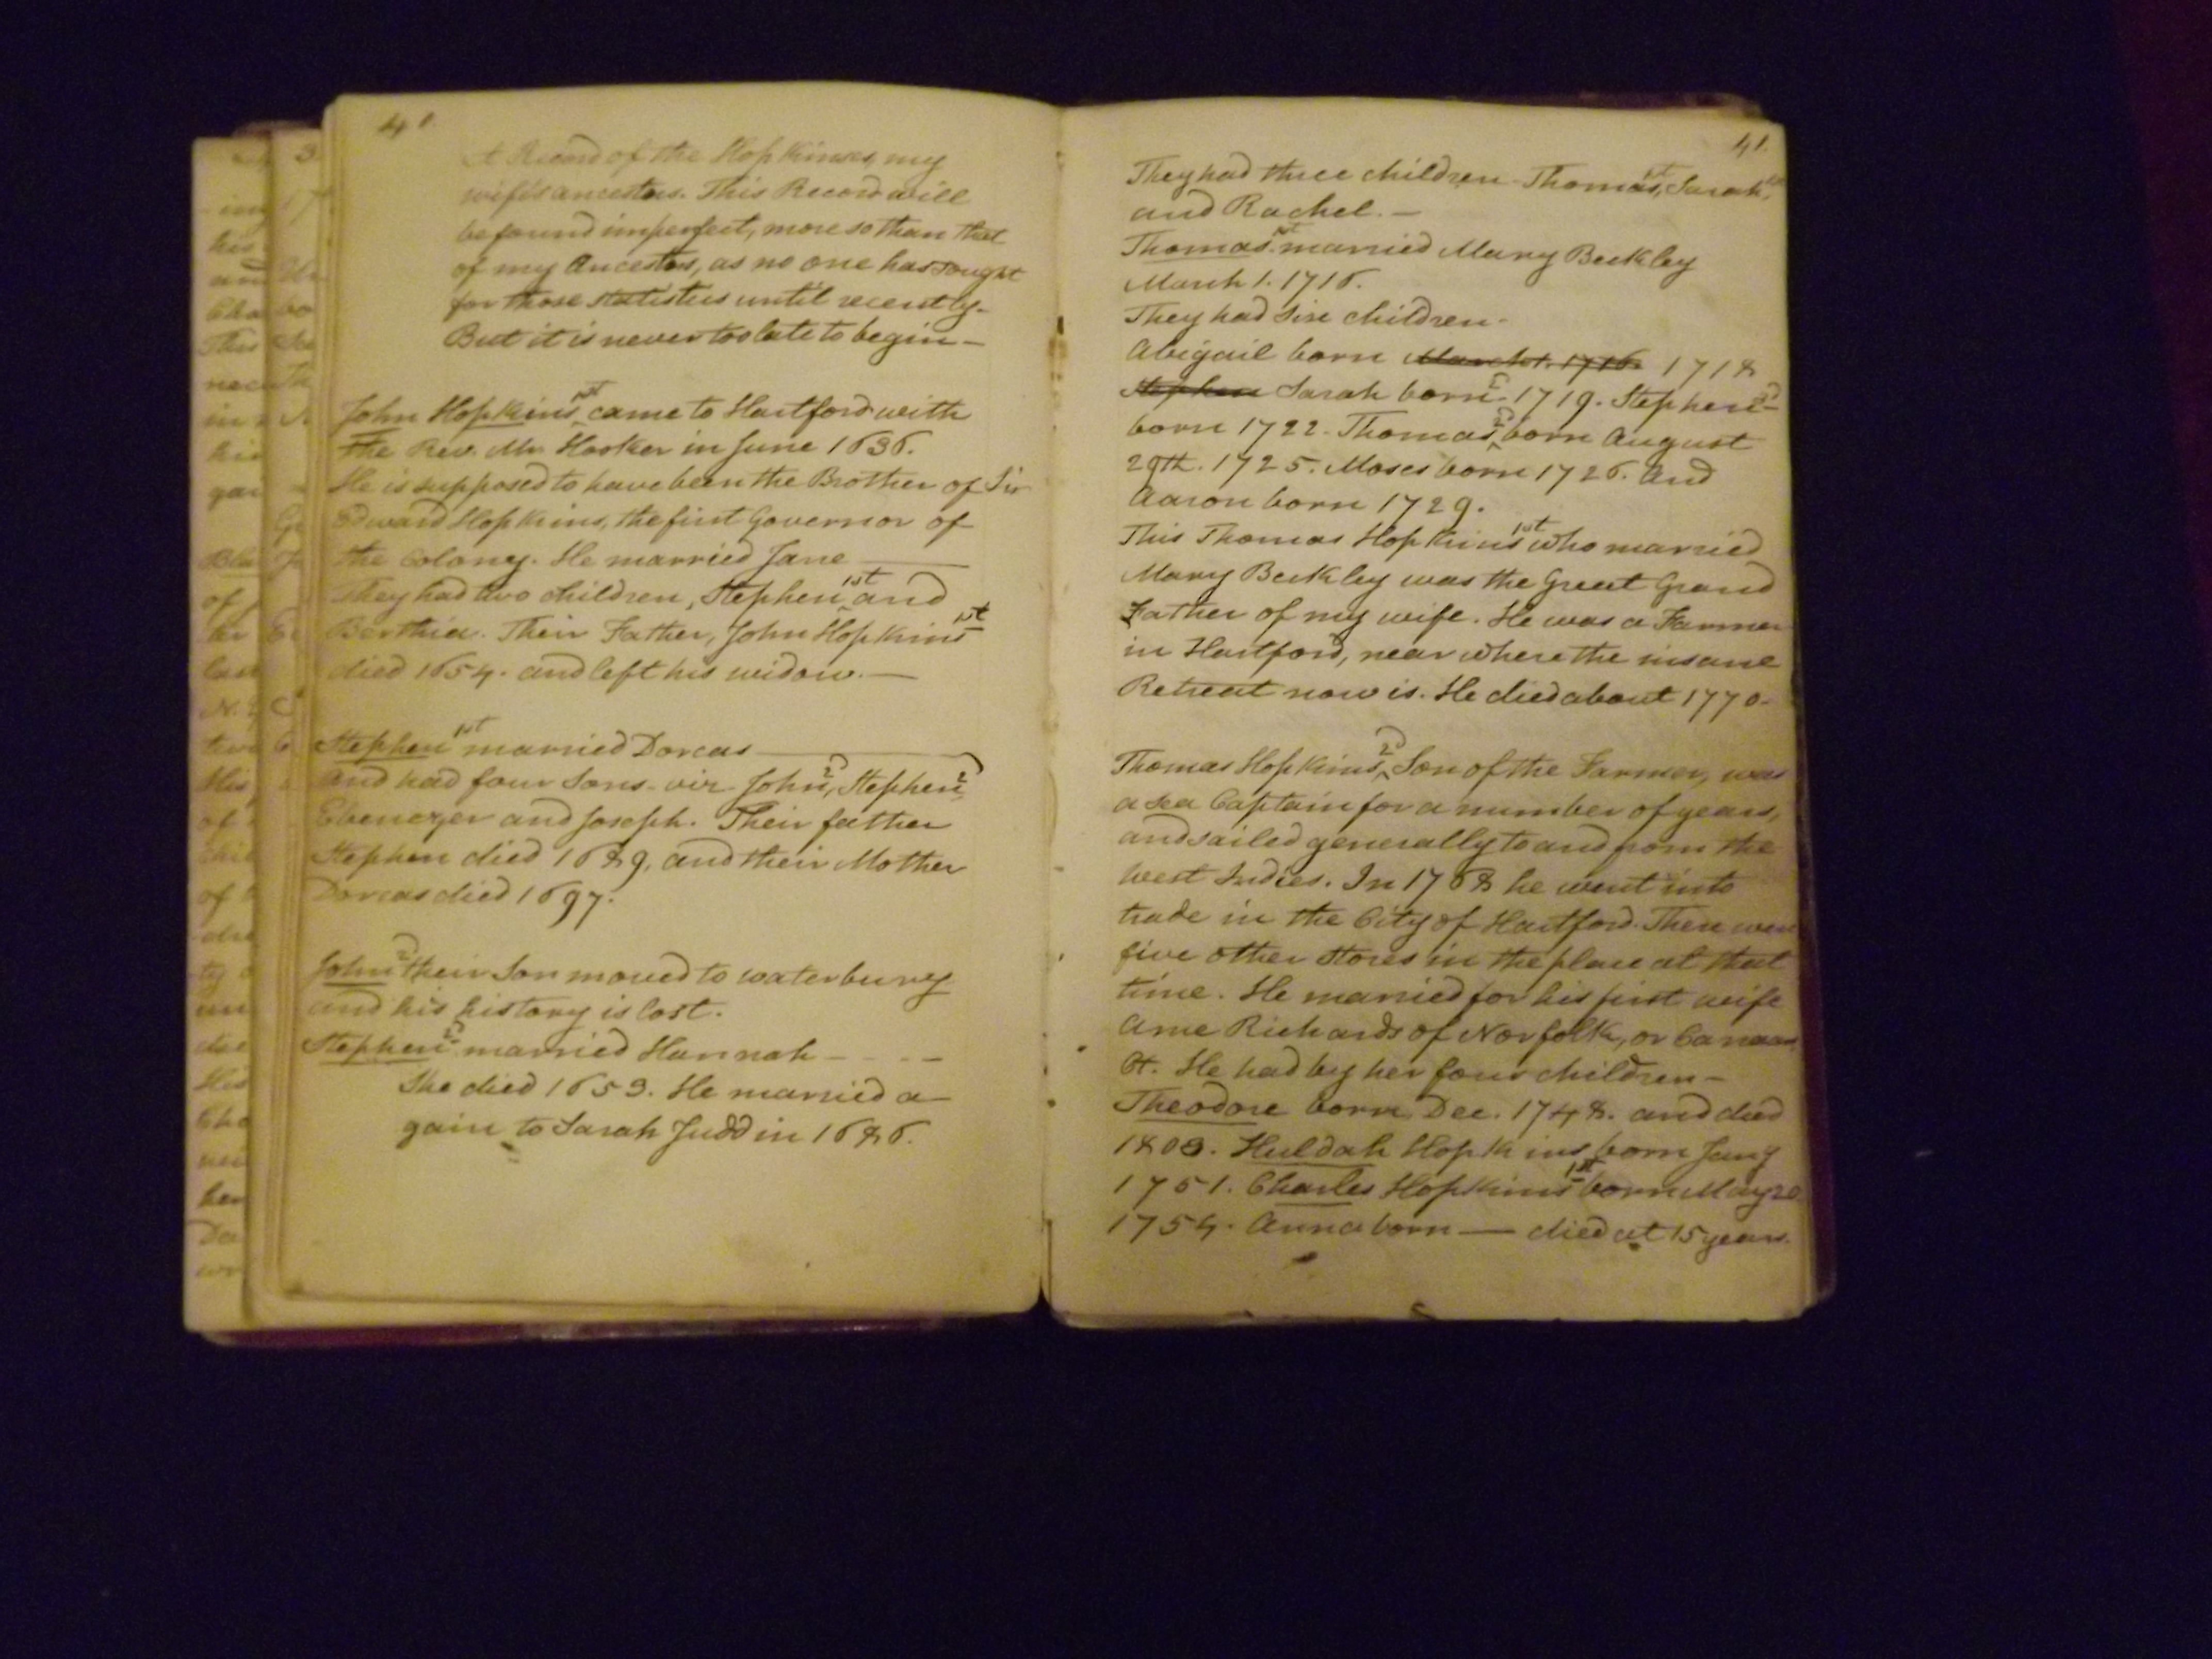 40.
A Record of the Hopkinses, my
wife's ancestors. This Record will
be found imperfect, more so than that
of my Ancestors, as no one has sought
for those statistics until recently.
But it is never too late to begin —
John Hopkins 1st came to Hartford with
the Rev. Mr. Hooker in June 1636.
He is supposed to have been the Brother of Sir
Edward Hopkins, the first Governor of
the Colony. He married Jane ———
They had two children, Stephen 1st and
Berthia. Their Father, John Hopkins 1st
died 1654. and left his widow. —
Stephen 1st married Dorcas ———
and had four Sons - viz John 2d, Stephen 2d
Ebenezer and Joseph. Their father
Stephen died 1689, and their Mother
Dorcas died 1697.
John 2d their Son moved to waterbury
and his history is lost.
Stephen 2d married Hannah - - - -
She died 1653. He married a-
gain to Sarah Judd in 1686.
41.
They had three children - Thomas 1st, Sarah 1st,
and Rachel. —
Thomas 1st married Mary Beckley
March 1. 1716.
They had Six children -
Abigail born March 1. 1716. 1718
Stephen Sarah born 2d 1719. Stephen 3d
born 1722. Thomas 2d born August
29th. 1725. Moses born 1726. And
Aaron born 1729.
This Thomas Hopkins 1st who married
Mary Beckley was the Great Grand
Father of my wife. He was a Farmer
in Hartford, near where the insane
Retreat now is. He died about 1770.
Thomas Hopkins 2d, Son of the Farmer, was
a sea Captain for a number of years,
and sailed generally to and from the
West Indies. In 1768 he went into
trade in the City of Hartford. There were
five other stores in the place at that
time. He married for his first wife
Ame Richards of Norfolk, or Canaan
Ct. He had by her four children -
Theodore born Dec. 1748. and died
1803. Huldah Hopkins born Jany
1751. Charles Hopkins 1st born May 20
1754. Anna born — died at 15 years.